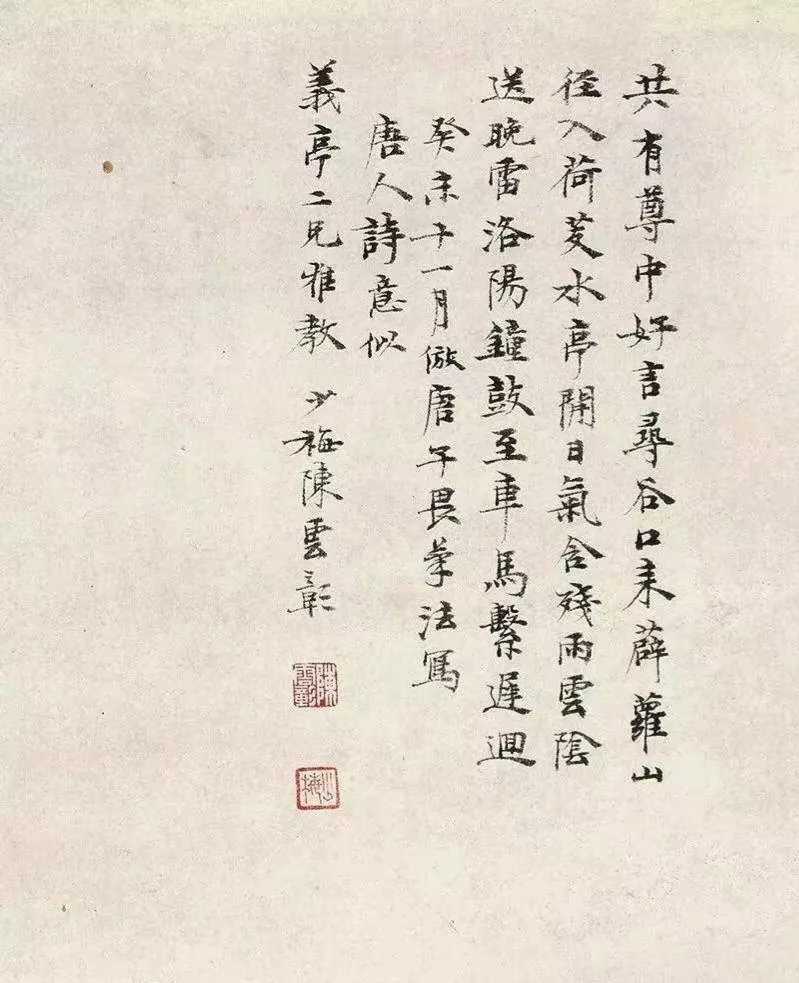 共有尊中好言尋谷口來薜蘿山
徑入荷芰水亭開日氣含殘雨雲陰
送晚雷洛陽鐘鼓至車馬繫遲迴
癸未十一月倣唐子畏筆法寫
唐人詩意似
義亭二兄雅教 少梅陳雲彰
陳雲彰
少梅